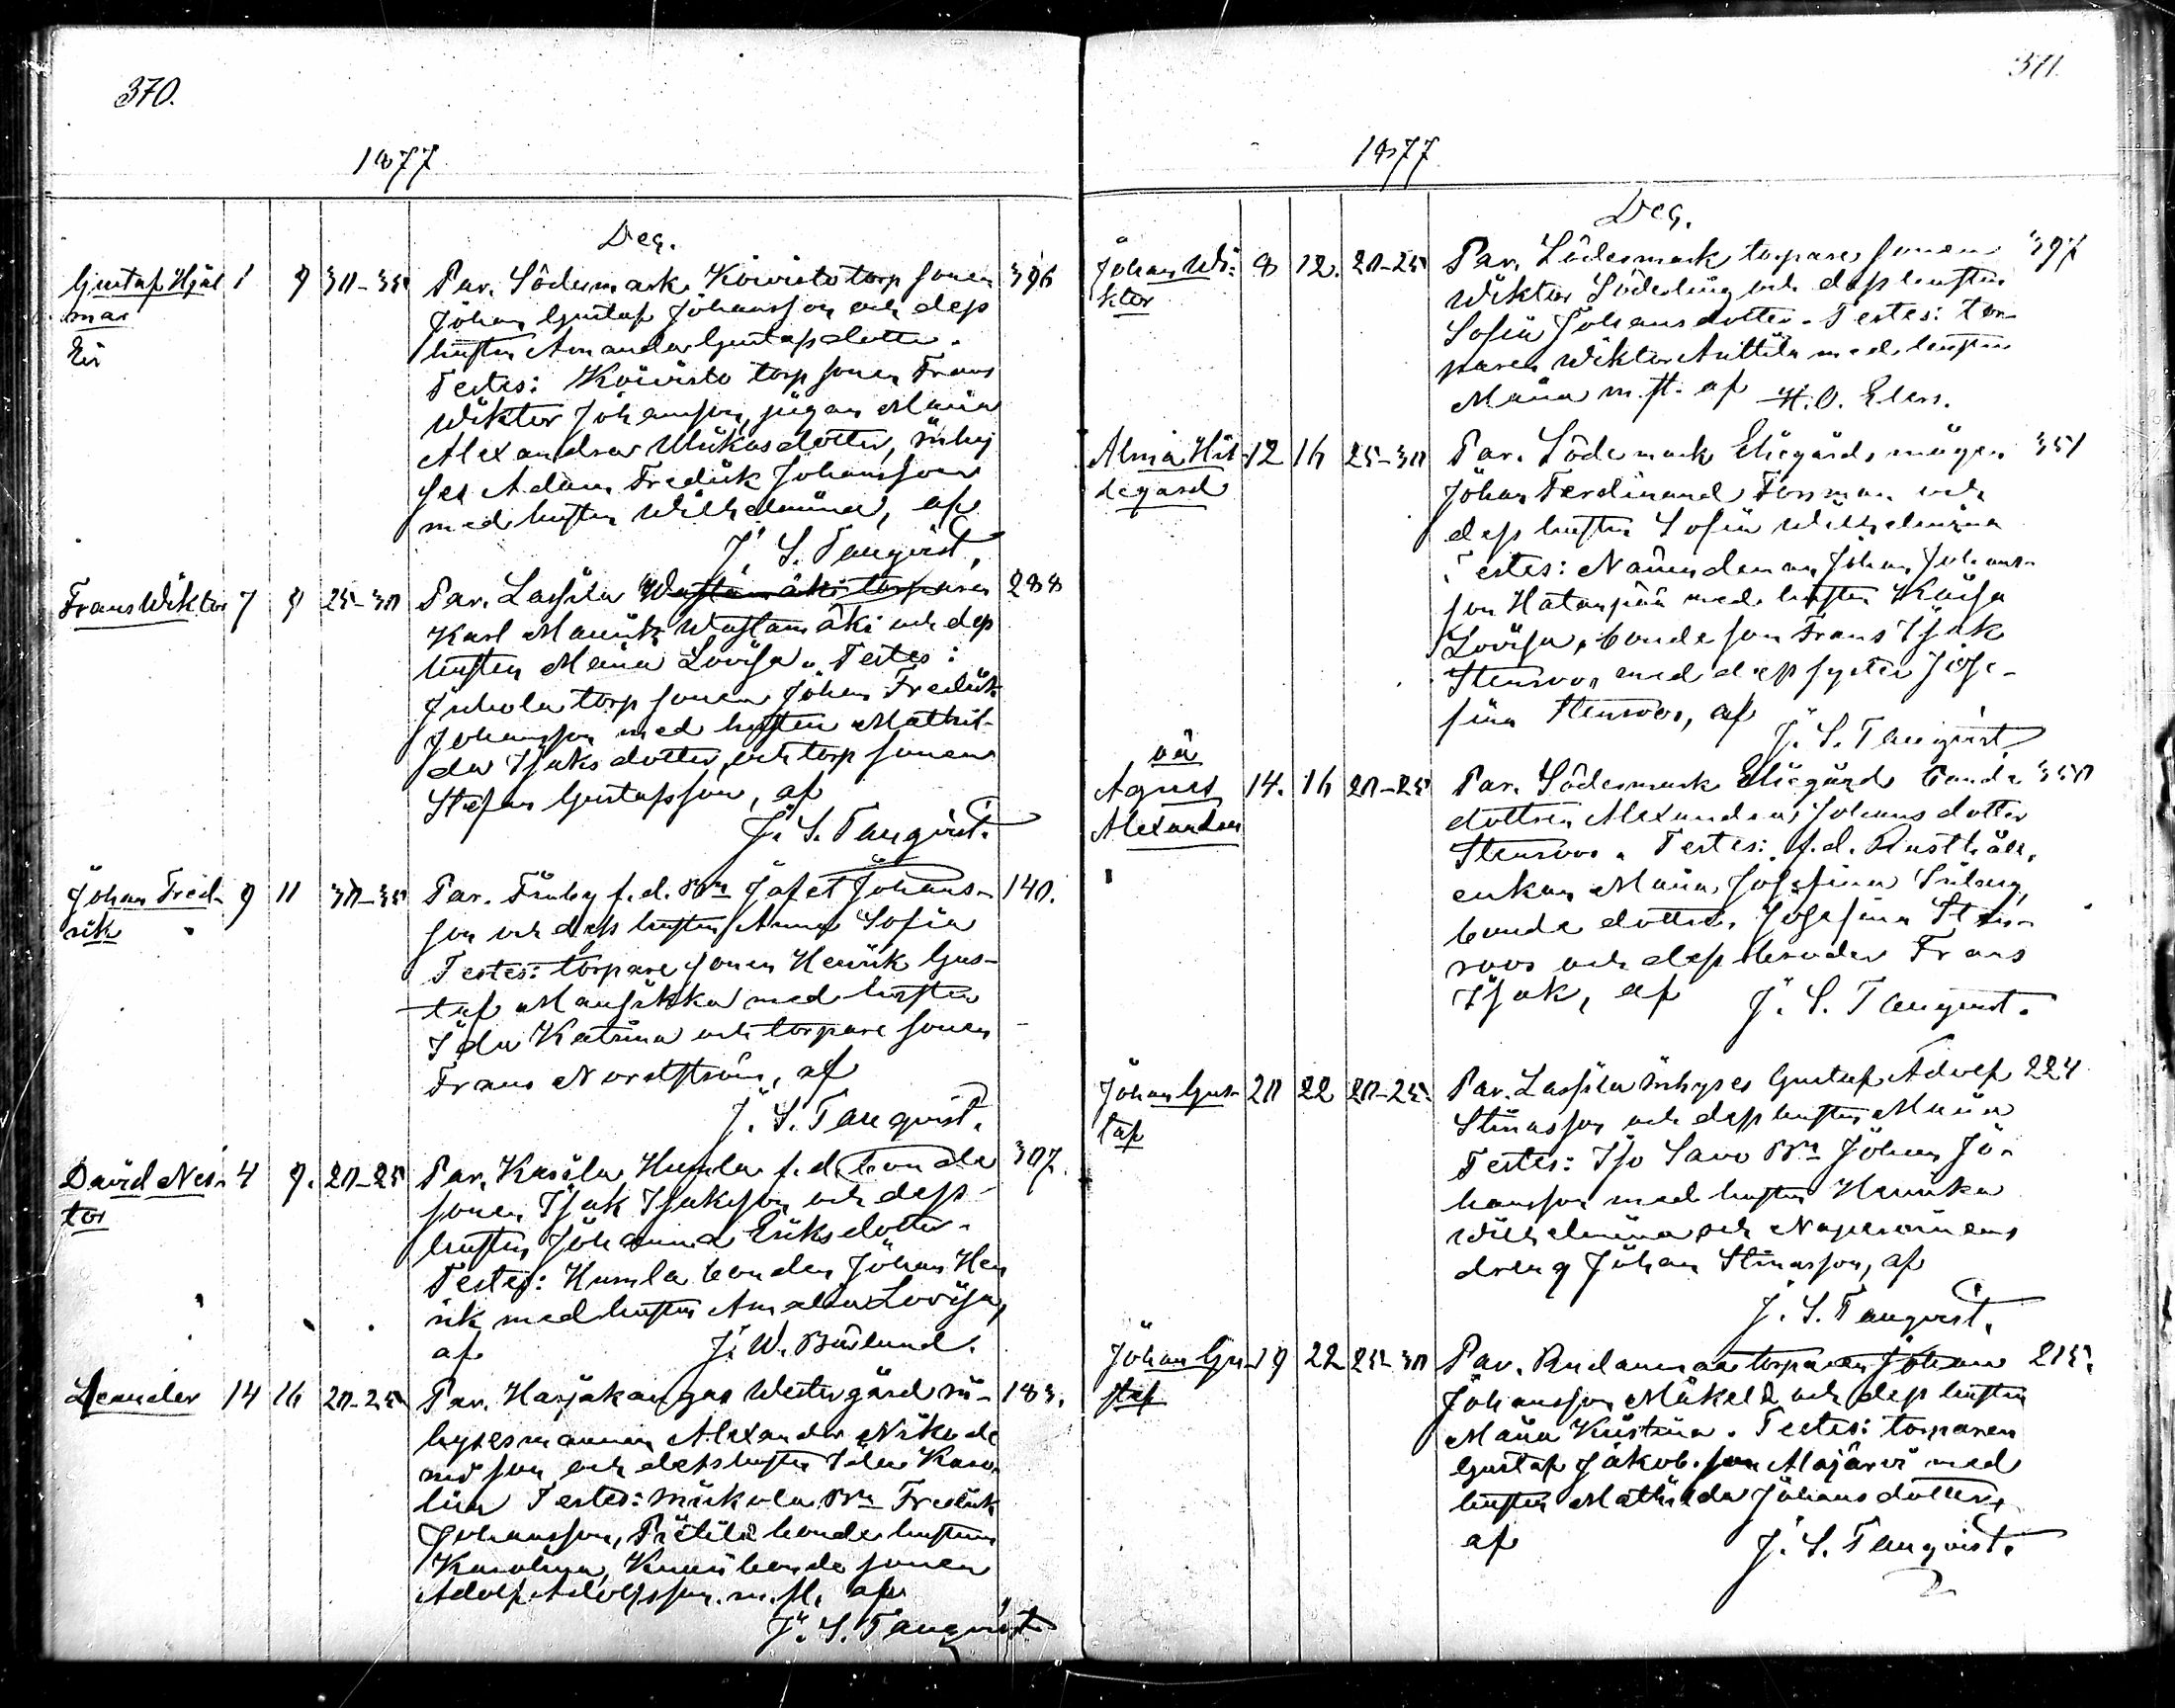 370.
1877
Dec.
Gustaf Hjal 1 9 30-35 Par. Södermark Koivisto torp sonen 396
mar Johan Gustaf Johansson och dess
Eir hustru Amanda Gustafsdotter.
Testes: Koivisto torp sonen Frans
Wiktor Johansson, pigan Maria
Alexandra Mikasdotter, inhy
ses Adam Fredrik Johansson
med hustru Wilhelmina, af
J. S. Tanqvist.
Frans Wiktor 7 9 25-30 Par. Lassila Wastamäki torparen 288
Karl Mauritz Wastamäki och dess
hustru Maria Lovisa. Testes:
Juhola torp sonen Johan Fredrik
Johansson med hustru Mathil-
da Isaksdotter, och torp sonen
Stefan Gustafsson, af
J. S. Tanqvist.
Johan Fred- 9 11 30-35 Par. Finby f.d. Bn Jafet Johans- 140.
rik son och dess hustru Anna Sofia
Testes: torpare sonen Henrik Gus-
taf Mansikka med hustru
Ida Katrina och torpare sonen
Frans Nordström, af
J. S. Tanqvist.
David Nes- 4 9. 20-25 Par. Kasila Humla f.d. bonde 307.
tor sonen Isak Isaksson och dess
hustru Johanna Eriksdotter.
Testes: Humla bonden Johan Hen
rik med hustru Amalia Lovisa,
af J. W. Bärlund.
Leander 14 16 20-25 Par. Harjakangas Westergård in- 183.
hysesmannen Alexander Nikode
mi son och dess hustru Ida Karo-
lina Testes: Mickola Bn Fredrik
Johansson, Prättilä bonde hustrun
Karolina, Knuus bonde sonen
Adolf Adolfsson m. fl. af
J. S. Tanqvist
371.
1877
Dec.
Johan Wi- 8 12. 20-25 Par. Södermark torpare sonen 397
ktor Wiktor Söderling och dess hustru
Sofia Johansdotter. Testes: tor-
paren Wiktor Anttila med hustru
Maria m. fl. af H. O. Elers.
Alma Hil- 12 16 25-30 Par. Södermark Eliegårds mågen 351
degard Johan Ferdinand Forsman och
dess hustru Sofia Wilhelmina
Testes: Näüendeman Johan Johans-
son Hatanpää med hustru Kaisa
Lovisa, bonde son Frans Isak
Stenroos, med dess syster Jose-
fina Stenroos, af
J. S. Tanqvist
oä
Agnes 14. 16 20-25 Par. Södermark Eliegård bonde 350
Alexandra dottren Alexandra Johansdotter
Stenroos. Testes: f.d. Rusthåll.
enkan Maria Josefina
bonde dottren Josefina Sten-
roos och dess broder Frans
Isak, af J. S. Tanqvist.
Johan Gus- 20 22 20-25 Par. Lassila inhyses Gustaf Adolf 224
taf Stinasson och dess hustru Maria
Testes: Iso Savo Bn Johan Jo-
hansson med hustru Henrika
Wilhelmina och
dräng Johan Stinasson, af
J. S. Tanqvist.
Johan Gu- 19 22 25-30 Par. Rudanmaa torparen Johan 215.
staf Johansson Mäkelä och dess hustru
Maria Kristina. Testes: torparen
Gustaf Jakob son Alajärvi med
hustru Mathilda Johansdotter,
af J. S. Tanqvist.